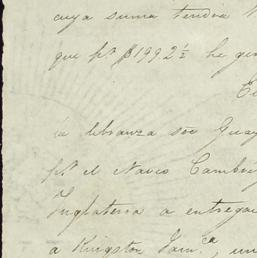 cuya suma tendra
que pr $1992½ he
la libranza sre Guay
pr el Navio Cambri
Inglaterra a entrega
a Kingston Jamca, un